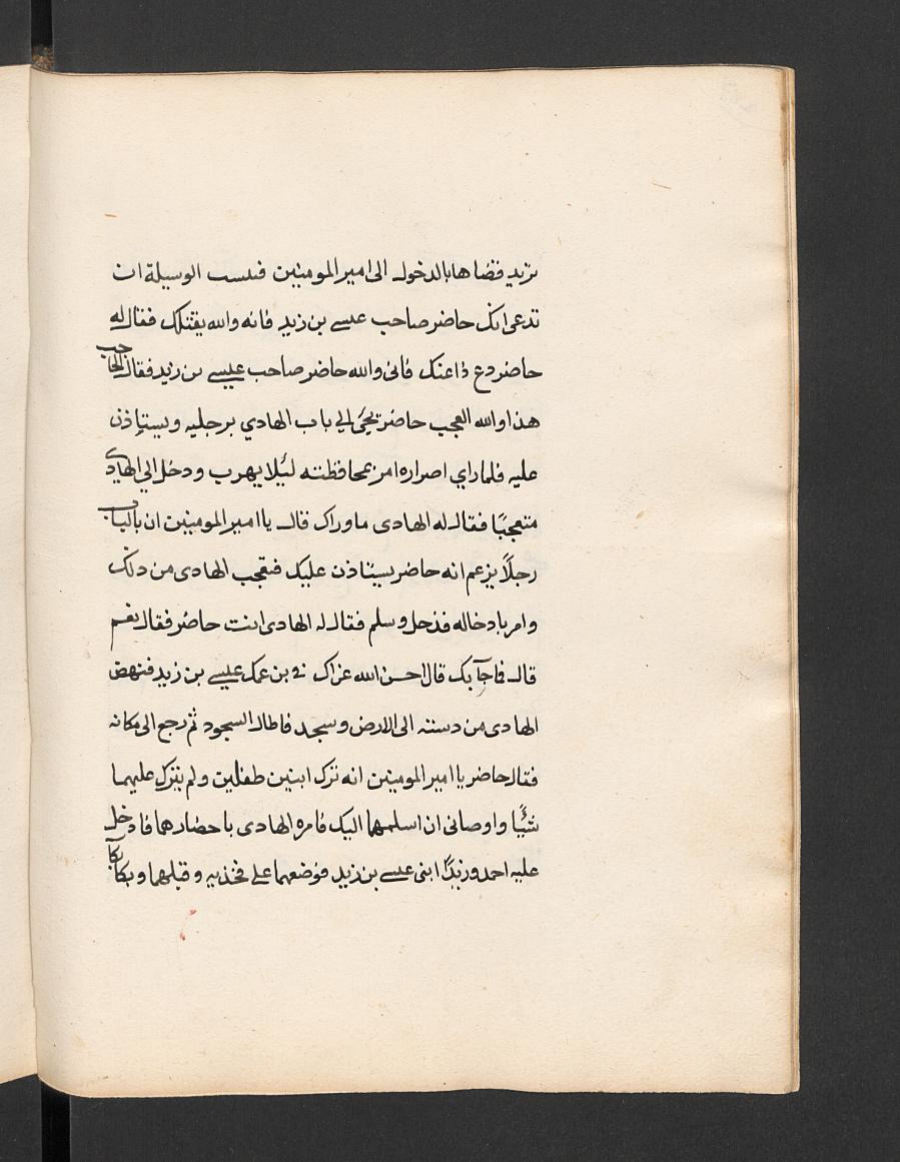 تريد قضاها بالدخول الى امير المومنين فليست الوسيلة ان
تدعى انك حاضر صاحب عيسى بن زيد فانه والله يقتلك فقال له
حاضر دع ذا عنك فانى والله حاضر صاحب عيسى بن زيد فقال الحاجب
هذا والله العجب حاضر يجى الى باب الهادي برجليه ويستاذن
عليه فلما راي اصراره امر بمحافظته ليلا يهرب ودخل الي الهادى
متعجبًا فقال له الهادى ماوراك قال يا امير المومنين ان بالباب
رجلًا يزعم انه حاضر يستاذن عليك فتعجب الهادى من ذلك
وامر بادخاله فدخل وسلم فقال له الهادى انت حاضر فقال نعم
قال فاجآبك قال احسن الله عزاك في بن عمك عيسى بن زيد فنهض
الهادى من دسته الى الارض وسجد فاطال السجود ثم رجع الى مكانه
فقال حاضر يا امير المومنين انه ترك ابنين طفلين ولم يترك عليهما
شيًا واوصانى ان اسلمهما اليك فامره الهادى باحضارهما فادخل
عليه احمد وزيدًا ابنى عيسى بن زيد فوضعهما على فخذيه وقبلهما وبكا بكآ